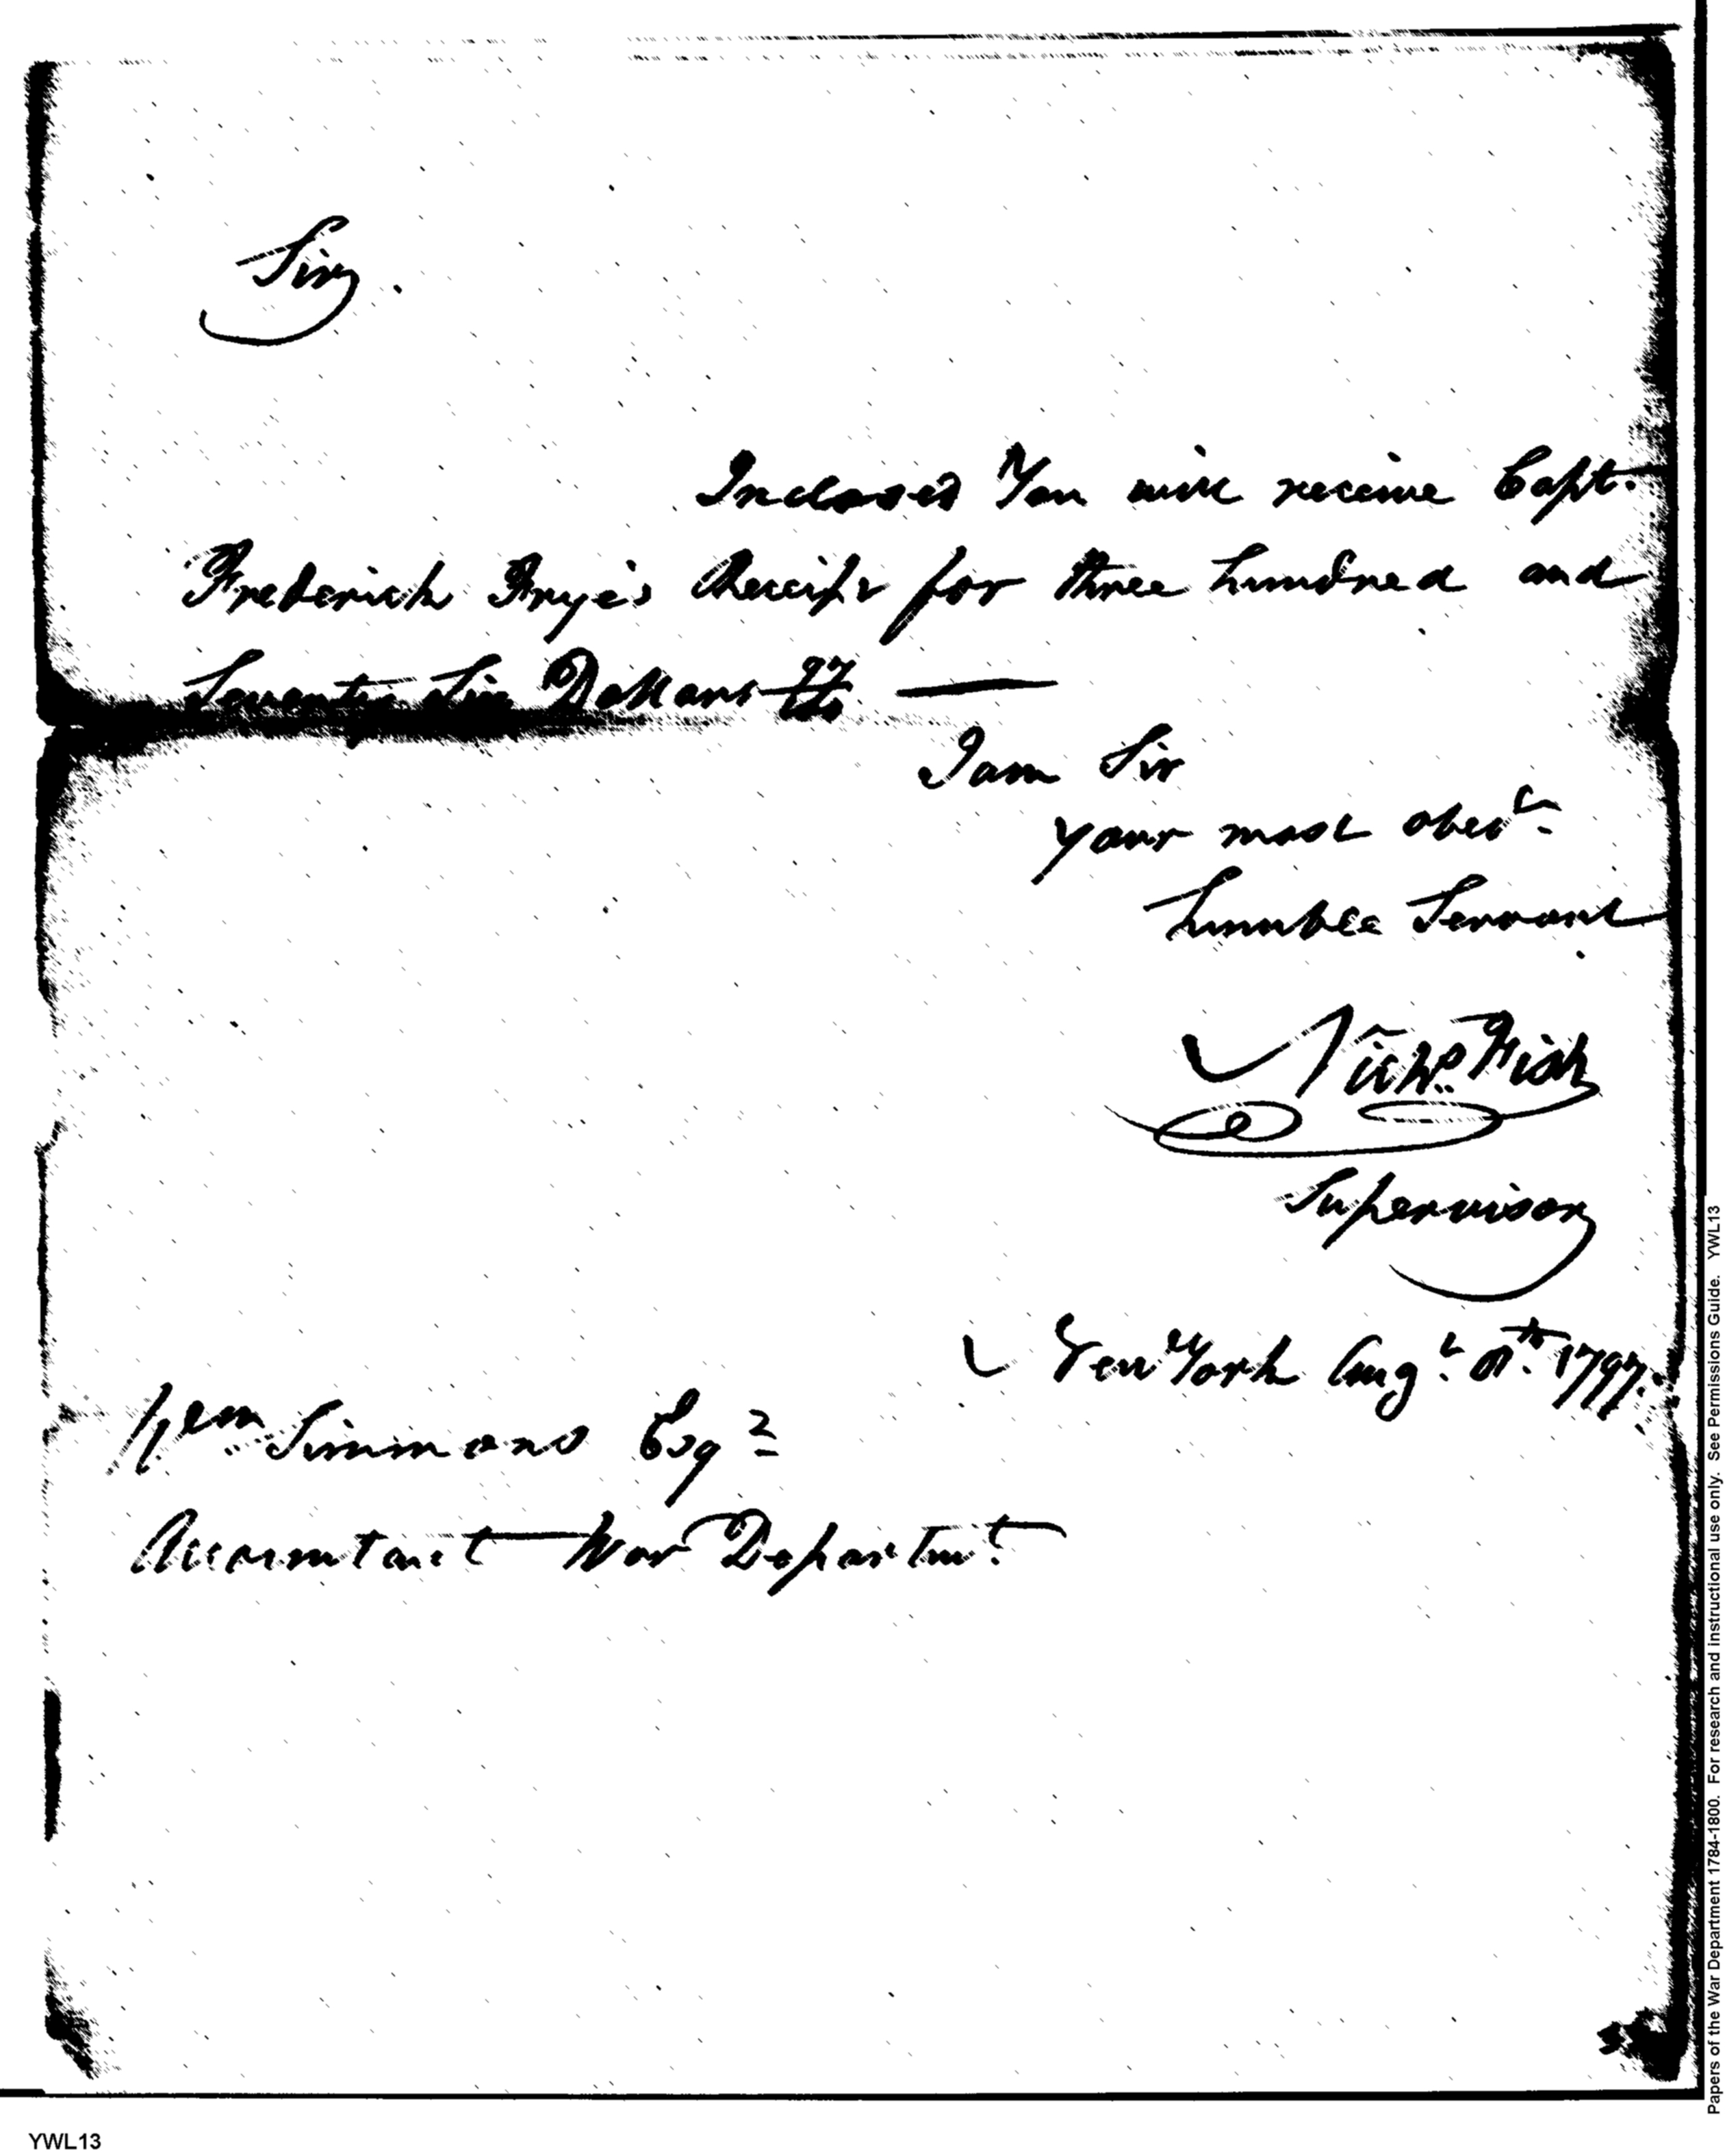 Sir.
Inclosed You will receive Capt.
Frederick Frye's Receipt for three hundred and
Seventy Six Dollars 97/100
I am Sir
your most obedt
humble Servant
Nichs Fish
Supervisor
New York Augt th 1797.
Wm Simmons Esqr
Accountant War Departmt
Papers of the War Department 1784-1800. For research and instructional use only. See Permissions Guide. YWL13
YWL13